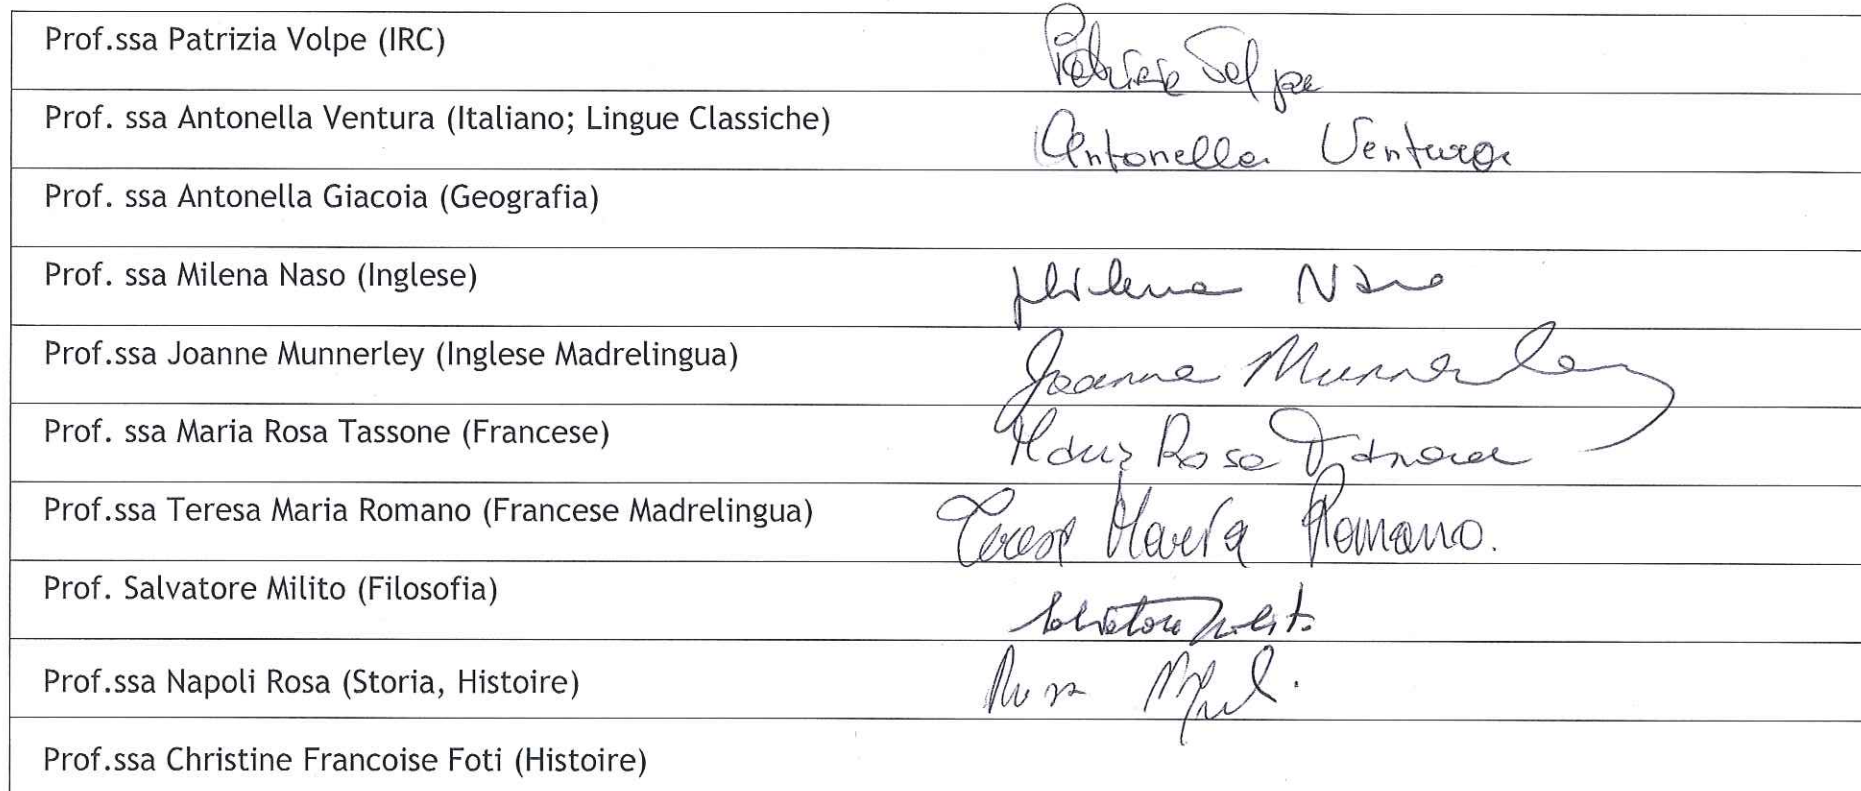 Prof.ssa Patrizia Volpe (IRC) Patrizia Volpe
Prof. ssa Antonella Ventura (Italiano; Lingue Classiche) Antonella Ventura
Prof. ssa Antonella Giacoia (Geografia)
Prof. ssa Milena Naso (Inglese) Milena Naso
Prof.ssa Joanne Munnerley (Inglese Madrelingua) Joanne Munnerley
Prof. ssa Maria Rosa Tassone (Francese) Maria Rosa Tassone
Prof.ssa Teresa Maria Romano (Francese Madrelingua) Teresa Maria Romano.
Prof. Salvatore Milito (Filosofia) Salvatore Milito
Prof.ssa Napoli Rosa (Storia, Histoire) Rosa
Prof.ssa Christine Francoise Foti (Histoire)